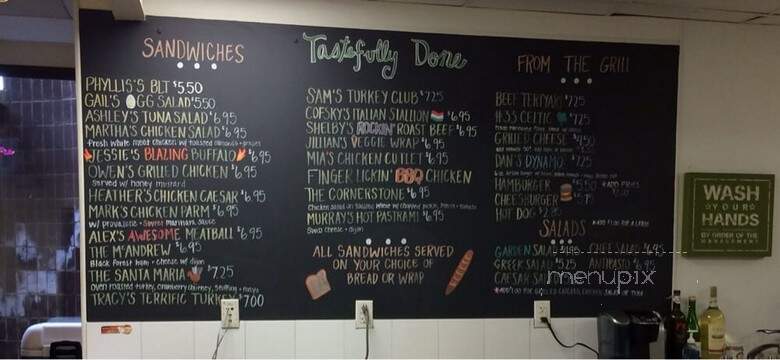 SANDWICHES
PHYLLIS'S BLT $5.50
GAIL'S EGG SALAD $5.50
ASHLEY'S TUNA SALAD $6.95
MARTHA'S CHICKEN SALAD $6.95
fresh white meat chicken w/ toasted almonds + grapes
JESSIE'S BLAZING BUFFALO $6.95
OWEN'S GRILLED CHICKEN $6.95
served w/ honey mustard
HEATHER'S CHICKEN CAESAR $6.95
MARK'S CHICKEN PARM $6.95
w/ provolone + sweet marinara sauce
ALEX'S AWESOME MEATBALL $6.95
THE McANDREW $6.95
Black Forest ham + cheese w/ dijon
THE SANTA MARIA $7.25
Oven roasted turkey, cranberry chutney, stuffing + mayo
TRACY'S TERRIFIC TURKEY $7.00
Tastefully Done
SAM'S TURKEY CLUB $7.25
COFSKY'S ITALIAN STALLION $6.95
SHELBY'S ROCKIN' ROAST BEEF $6.95
JILLIAN'S VEGGIE WRAP $6.95
MIA'S CHICKEN CUTLET $6.95
FINGER LICKIN' BBQ CHICKEN
THE CORNERSTONE $6.95
MURRAY'S HOT PASTRAMI $6.95
Swiss cheese + dijon
ALL SANDWICHES SERVED
ON YOUR CHOICE OF
BREAD OR WRAP
FROM THE GRILL
BEEF TERIYAKI $7.25
#33 CELTIC $7.25
GRILLED CHEESE $4.50
DAN'S DYNAMO $7.25
HAMBURGER $5.50
CHEESEBURGER $5.75
HOT DOG
SALADS
GARDEN SALAD $4.95
CHEF SALAD $6.95
GREEK SALAD $5.25
ANTIPASTO $6.95
CAESAR SALAD
menupix
WASH
YOUR
HANDS
BY ORDER OF THE
MANAGEMENT